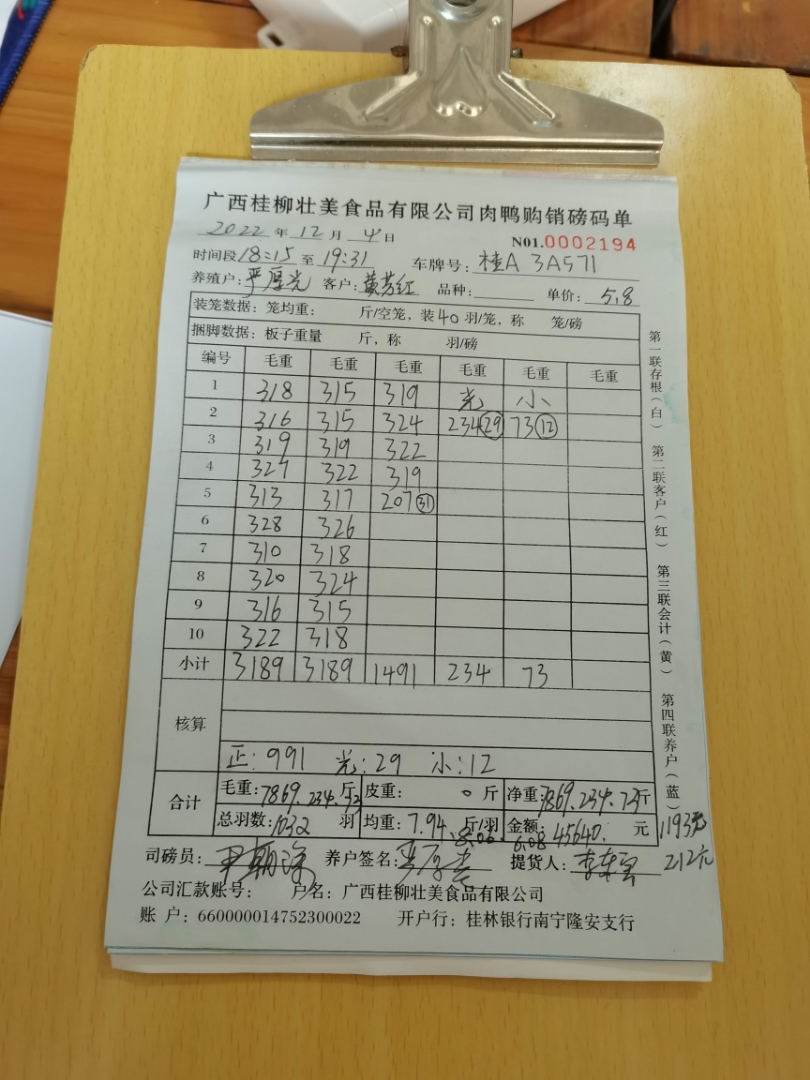 广西桂柳壮美食品有限公司肉鸭购销磅码单
2022 年 12 月 4 日 N01.0002194
时间段 18:15 至 19:31 车牌号: 桂A 3A571
养殖户: 严厚光 客户: 黄芳红 品种: 单价: 5.8
装笼数据: 笼均重: 斤/空笼, 装 40 羽/笼, 称 笼/磅
捆脚数据: 板子重量 斤, 称 羽/磅
编号 毛重 毛重 毛重 毛重 毛重 毛重
1 318 315 319 光 小
2 316 315 324 234 29 73 12
3 319 319 322
4 327 322 319
5 313 317 207 31
6 328 326
7 310 318
8 320 324
9 316 315
10 322 318
小计 3189 3189 1491 234 73
核算
正: 991 光: 29 小: 12
合计 毛重: 7869.234.73 斤 皮重: 0 斤 净重: 7869.234.73 斤
总羽数: 1032 羽 均重: 7.94 .8.06. 6.08 斤/羽 金额: 45640. 元 1193元
司磅员: 养户签名: 提货人: 212元
公司汇款账号: 户名: 广西桂柳壮美食品有限公司
账 户: 660000014752300022 开户行: 桂林银行南宁隆安支行
第一联存根(白) 第二联客户(红) 第三联会计(黄) 第四联养户(蓝)